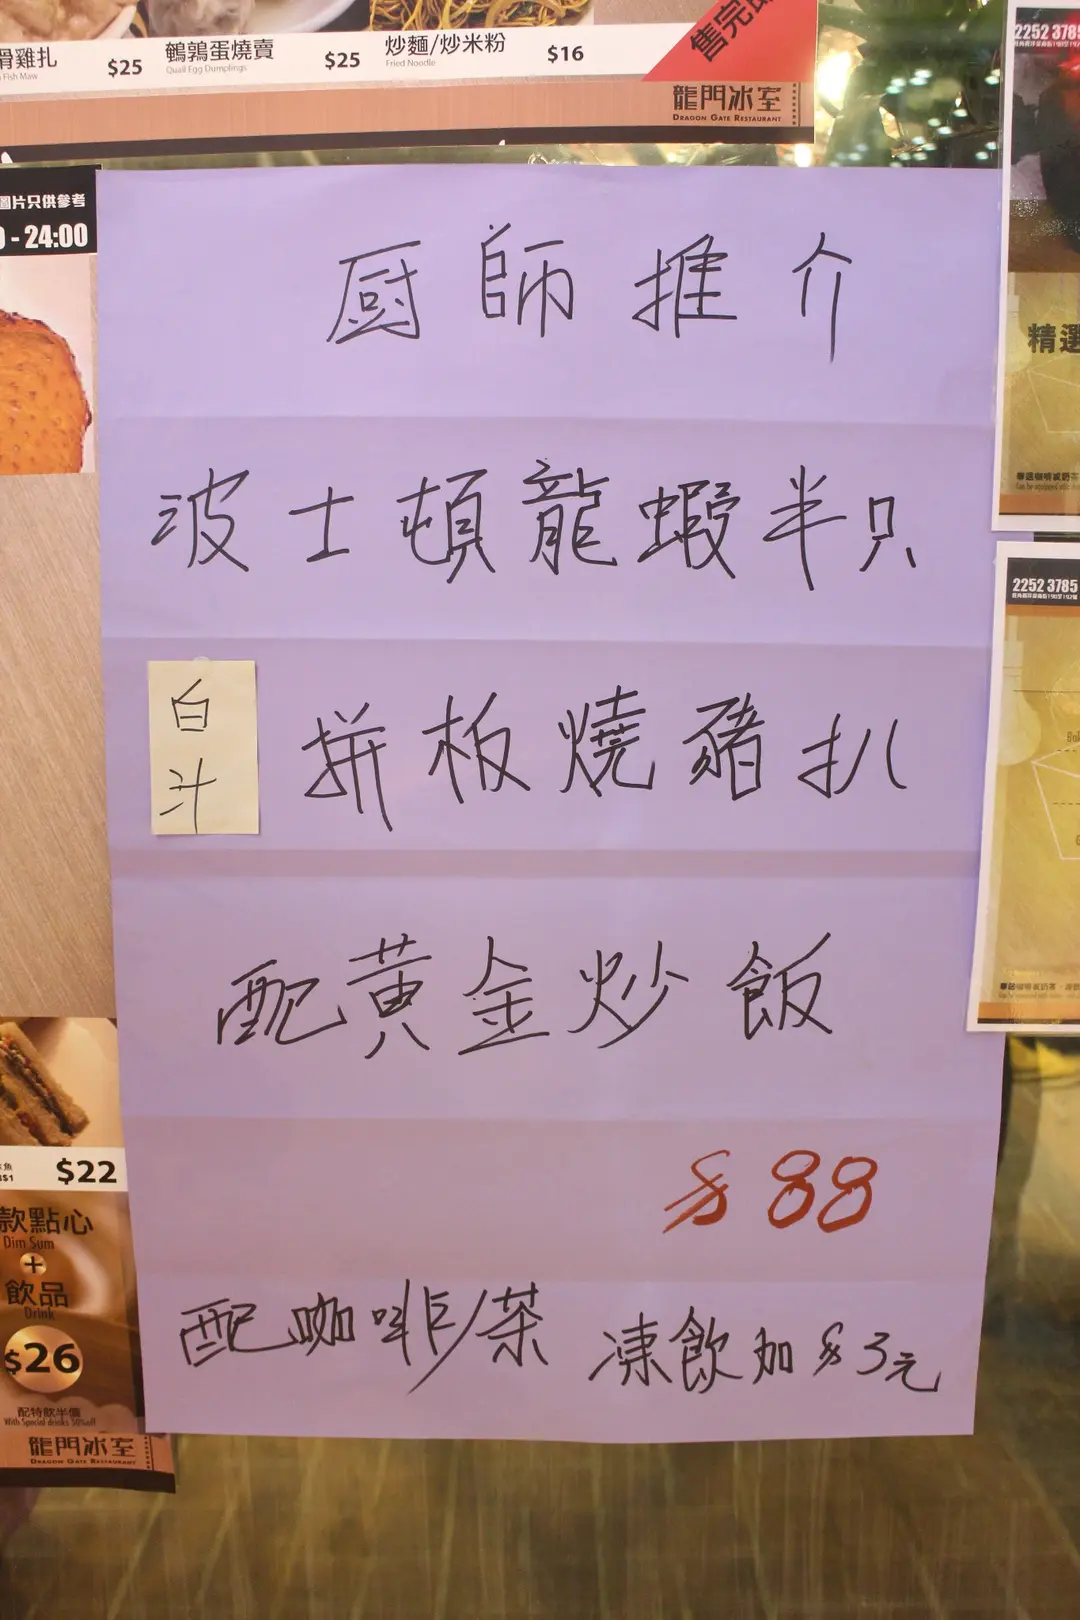 骨雞扎
Fish Maw
$25
鵪鶉蛋燒賣
Quail Egg Dumplings
$25
炒麵/炒米粉
Fried Noodle
$16
售完即
龍門冰室
DRAGON GATE RESTAURANT
圖片只供參考
- 24:00
2252 3785
精選
廚師推介
波士頓龍蝦半只
白汁
拼板燒豬扒
配黃金炒飯
$88
配咖啡/茶 凍飲加$3元
2252 3785
$22
款點心
Dim Sum
+
飲品
Drink
$26
配特飲半價
With Special drinks 50%off
龍門冰室
DRAGON GATE RESTAURANT